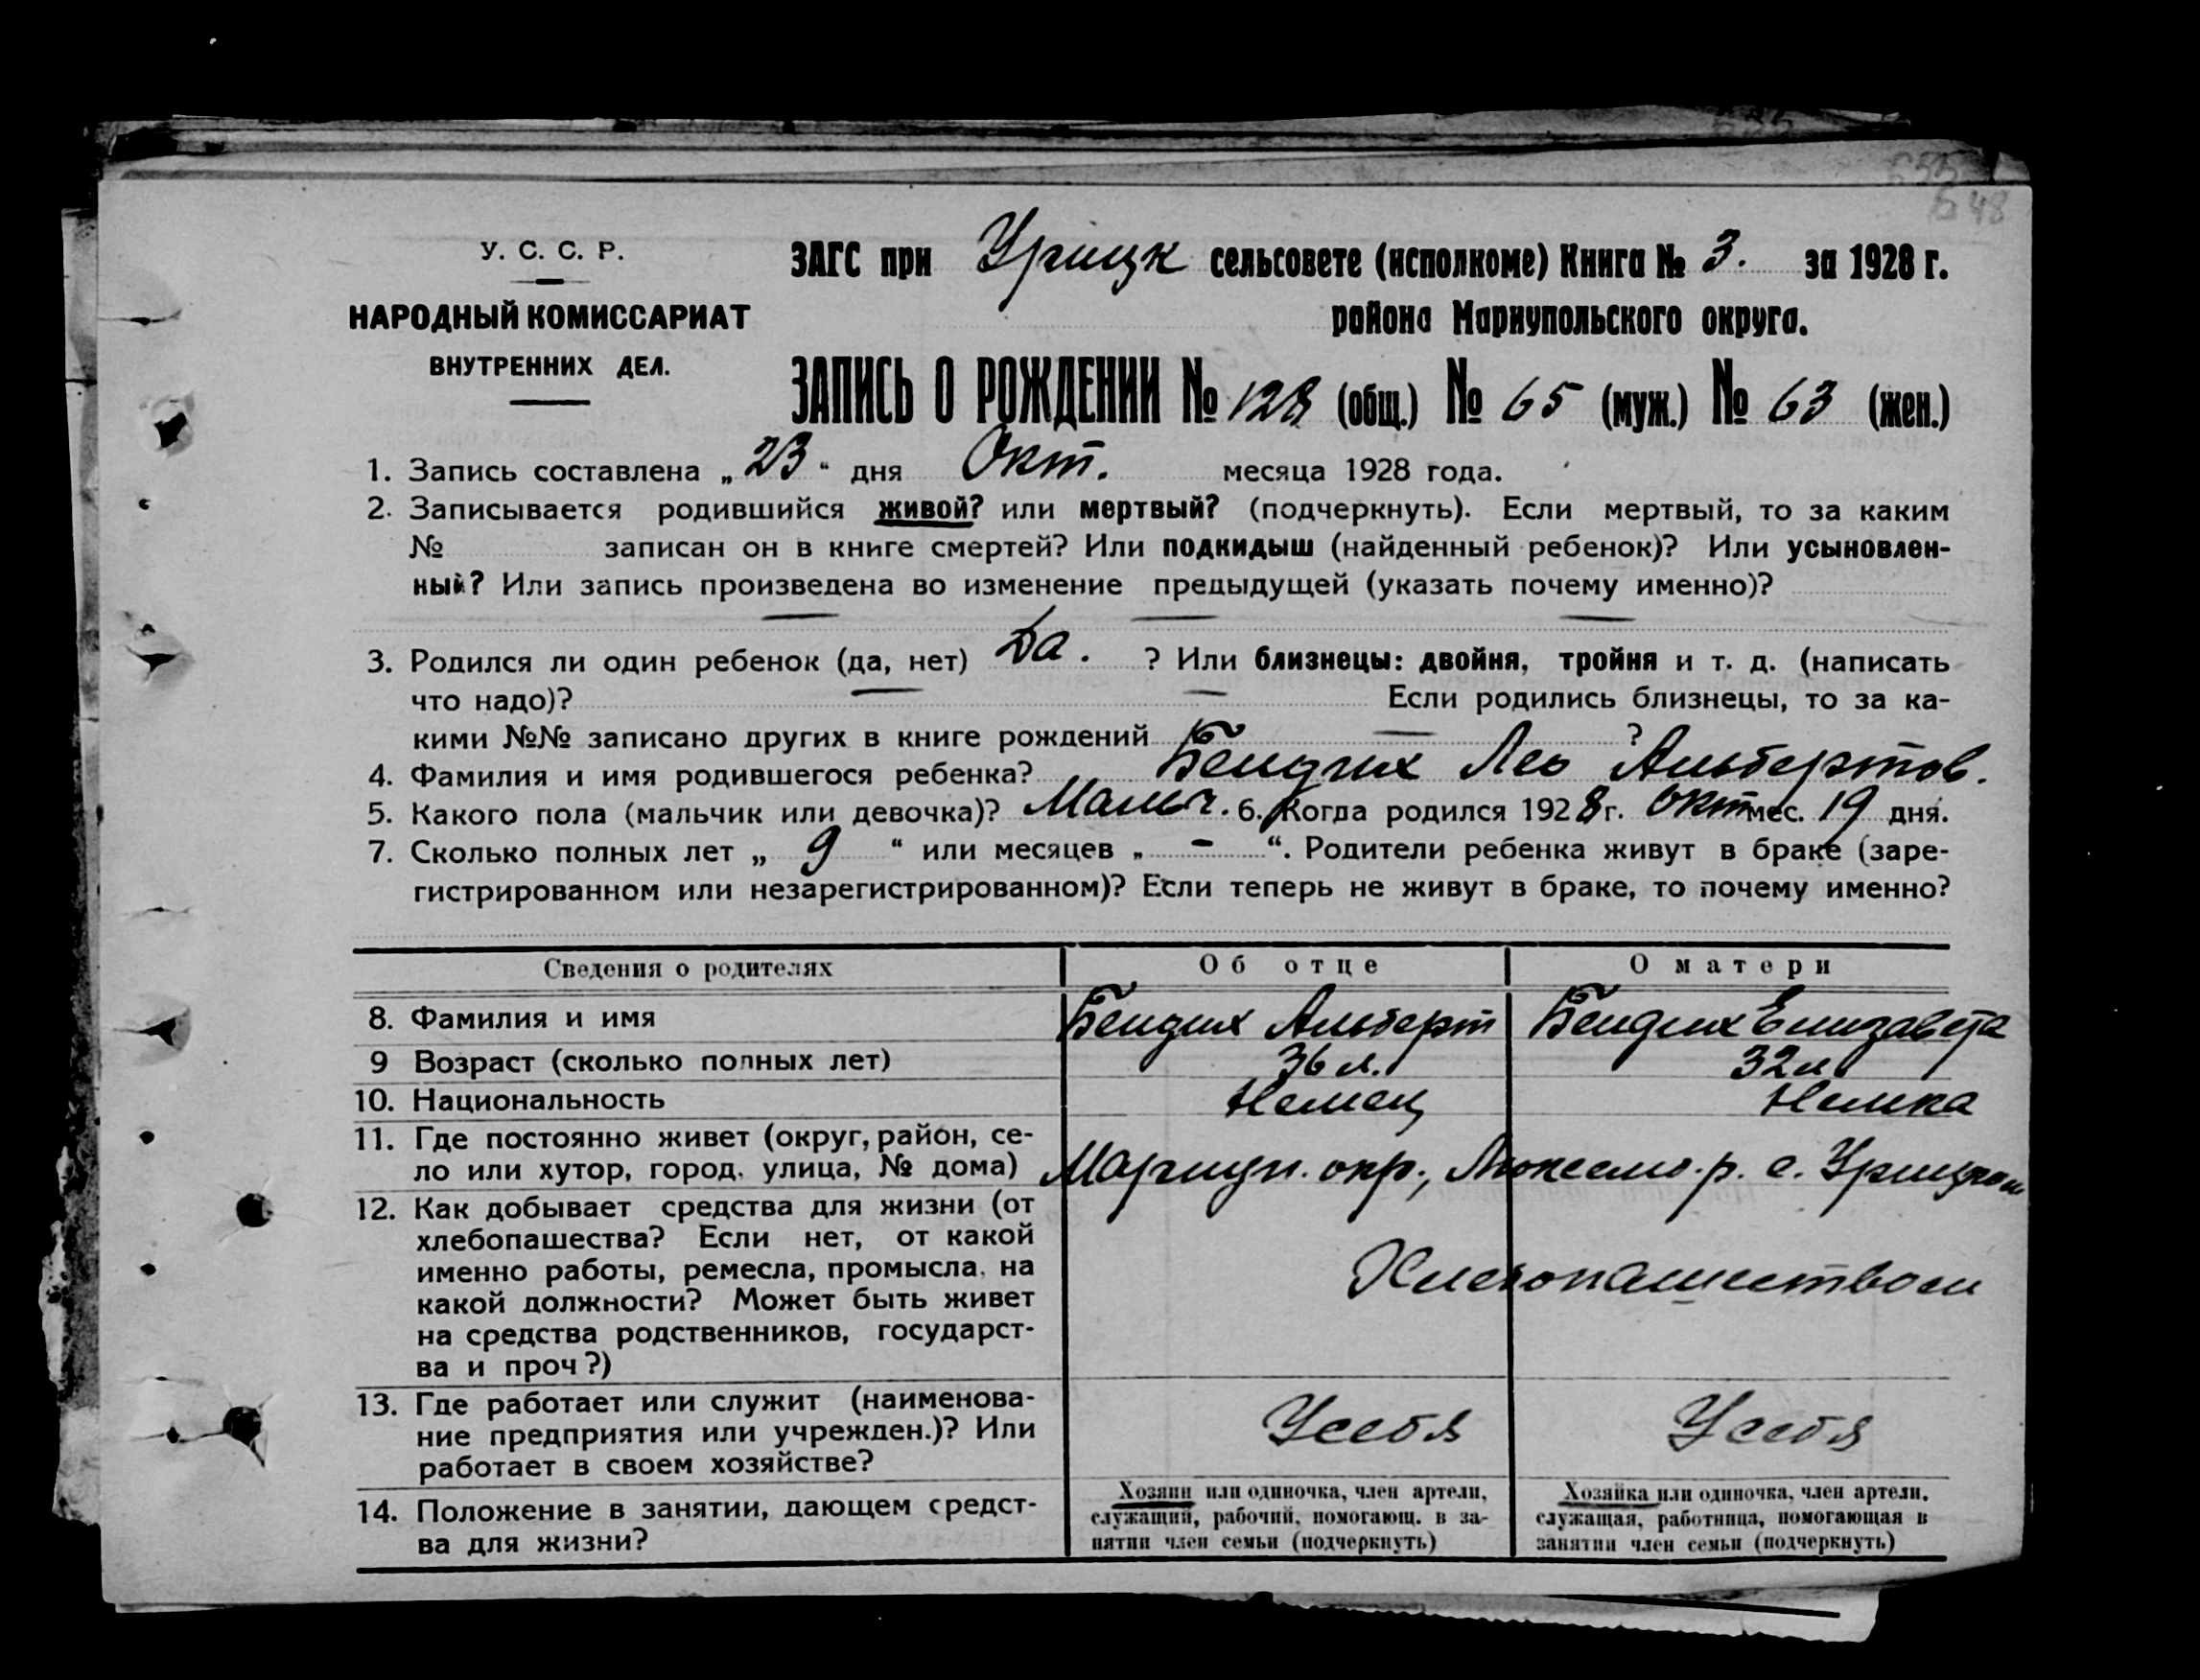 635
648
У. С. С. Р.
НАРОДНЫЙ КОМИССАРИАТ
ВНУТРЕННИХ ДЕЛ.
ЗАГС при Урицк сельсовете (исполкоме) Книга № 3. за 1928 г.
района Мариупольского округа.
ЗАПИСЬ О РОЖДЕНИИ № 128 (общ.) № 65 (муж.) № 63 (жен.)
1. Запись составлена „ 23 “ дня Окт. месяца 1928 года.
2. Записывается родившийся живой? или мертвый? (подчеркнуть). Если мертвый, то за каким
№ записан он в книге смертей? Или подкидыш (найденный ребенок)? Или усыновлен-
ный? Или запись произведена во изменение предыдущей (указать почему именно)?
— — —
3. Родился ли один ребенок (да, нет) Да. ? Или близнецы: двойня, тройня и т. д. (написать
что надо)? — — Если родились близнецы, то за ка-
кими №№ записано других в книге рождений — ?
4. Фамилия и имя родившегося ребенка? Бендих Лео Альбертов.
5. Какого пола (мальчик или девочка)? Мальч. 6. Когда родился 1928 г. Окт мес. 19 дня.
7. Сколько полных лет „ 9 “ или месяцев „ - “. Родители ребенка живут в браке (заре-
гистрированном или незарегистрированном)? Если теперь не живут в браке, то почему именно?
Сведения о родителях Об отце О матери
8. Фамилия и имя Бендих Альберт Бендих Елизавета
9 Возраст (сколько полных лет) 36 л. 32 л
10. Национальность Немец Немка
11. Где постоянно живет (округ, район, се-
ло или хутор, город, улица, № дома) Мариуп. окр., Люксемб. р. с. Урицком
12. Как добывает средства для жизни (от
хлебопашества? Если нет, от какой
именно работы, ремесла, промысла, на
какой должности? Может быть живет
на средства родственников, государст-
ва и проч?)
Хлебопашеством
13. Где работает или служит (наименова-
ние предприятия или учрежден.)? Или
работает в своем хозяйстве?
У себя У себя
14. Положение в занятии, дающем средст-
ва для жизни?
Хозяин или одиночка, член артели,
служащий, рабочий, помогающ. в за-
нятии член семьи (подчеркнуть)
Хозяйка или одиночка, член артели,
служащая, работница, помогающая в
занятии член семьи (подчеркнуть)